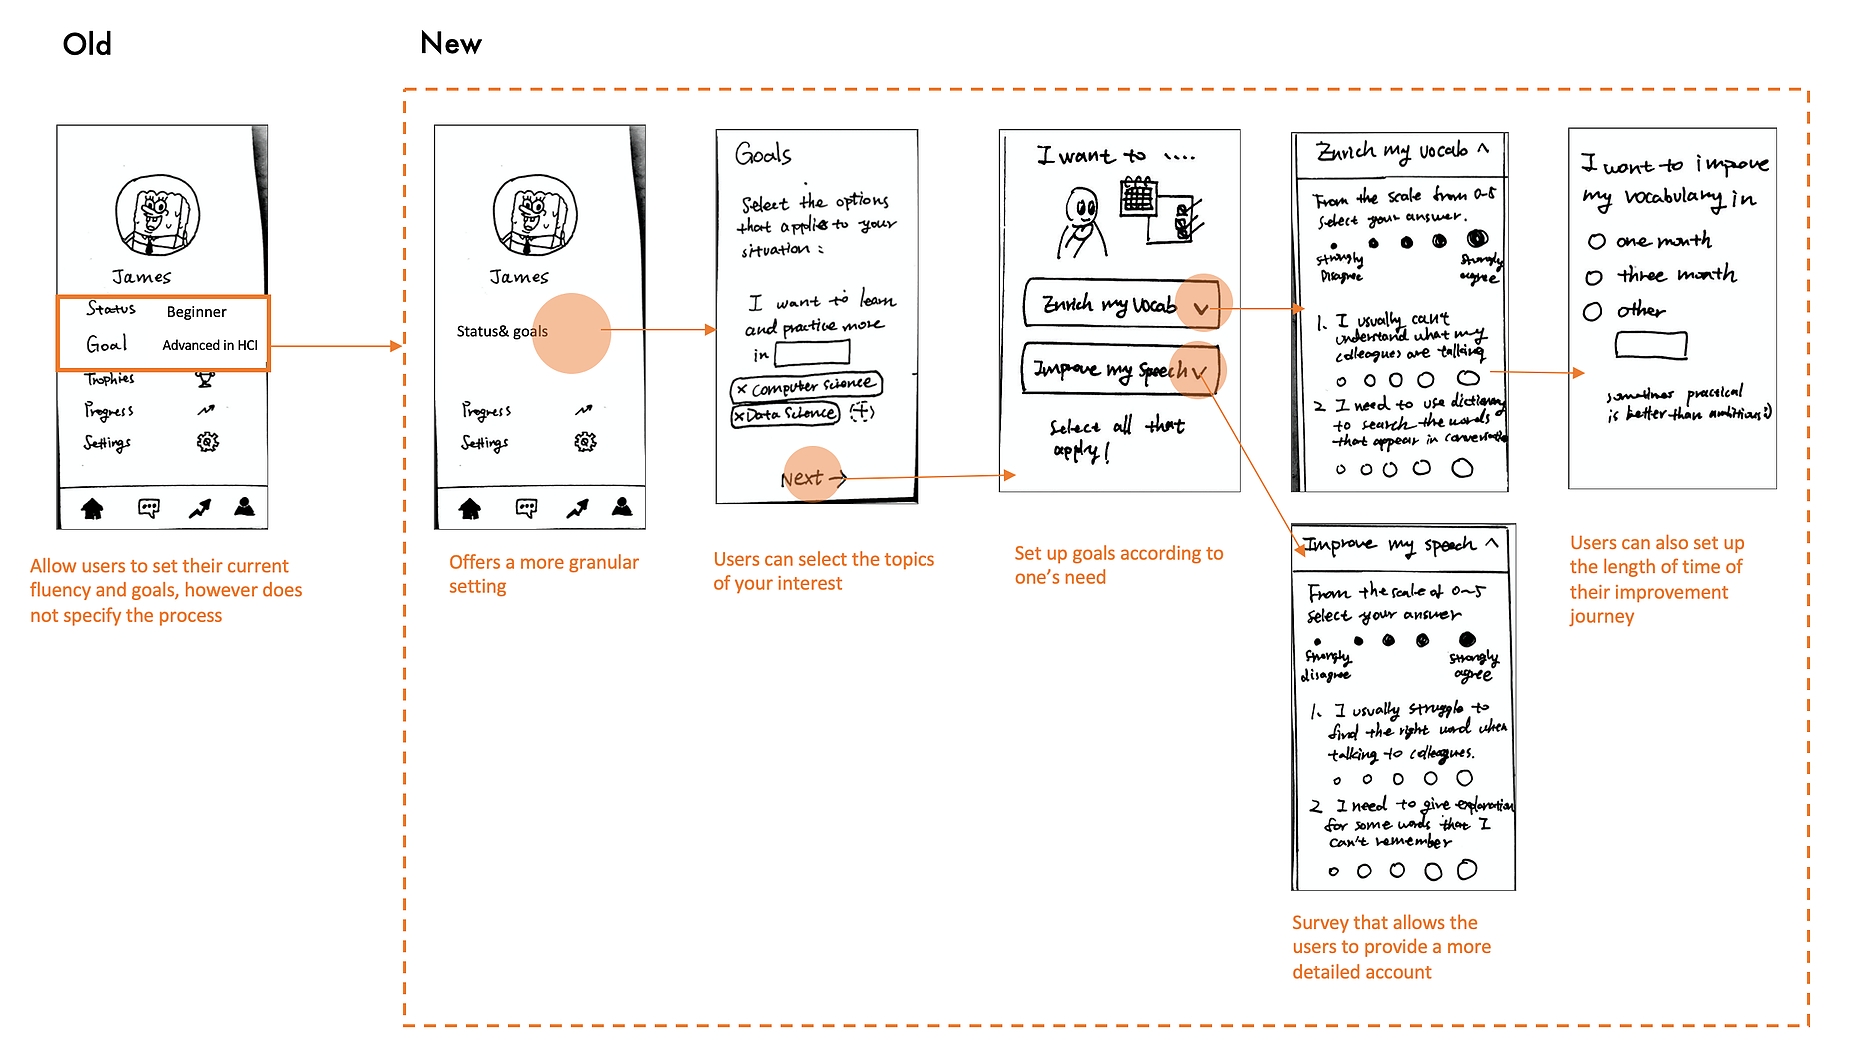 Old
New
James
Status Beginner
Goal Advanced in HCI
Trophies
Progress
Settings
Allow users to set their current
fluency and goals, however does
not specify the process
James
Status& goals
Progress
Settings
Offers a more granular
setting
Goals
Select the options
that applies to your
situation :
I want to learn
and practice more
in
× Computer Science
× Data Science +
Next →
Users can select the topics
of your interest
I want to ....
Enrich my Vocab
Improve my Speech
Select all that
apply!
Set up goals according to
one's need
Enrich my vocab
From the scale from 0-5
Select your answer.
Strongly
Disagree
Strongly
agree
1. I usually can't
understand what my
colleagues are talking
2 I need to use dictionary
to search the words
that appear in conversation
Improve my speech
From the scale of 0~5
select your answer
Strongly
disagree
Strongly
agree
1. I usually struggle to
find the right word when
talking to colleagues.
2 I need to give explanation
for some words that I
can't remember
Survey that allows the
users to provide a more
detailed account
I want to improve
my vocabulary in
one month
three month
other
sometimes practical
is better than ambitious :)
Users can also set up
the length of time of
their improvement
journey